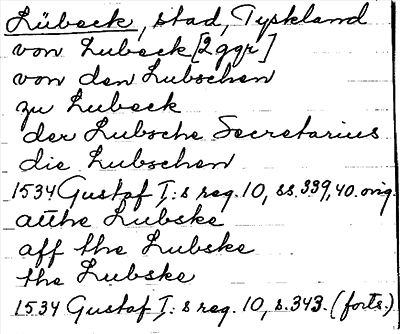 Lübeck, stad, Tyskland
von Lubeck [2 ggr]
von den Lubschen
zu Lubeck
der Lubsche Secretarius
die Lubschen
1534 Gustaf I:s reg. 10, ss. 339, 40. orig.
athe Lubske
aff the Lubske
the Lubske
1534 Gustaf I:s reg. 10, s. 343. (forts.)